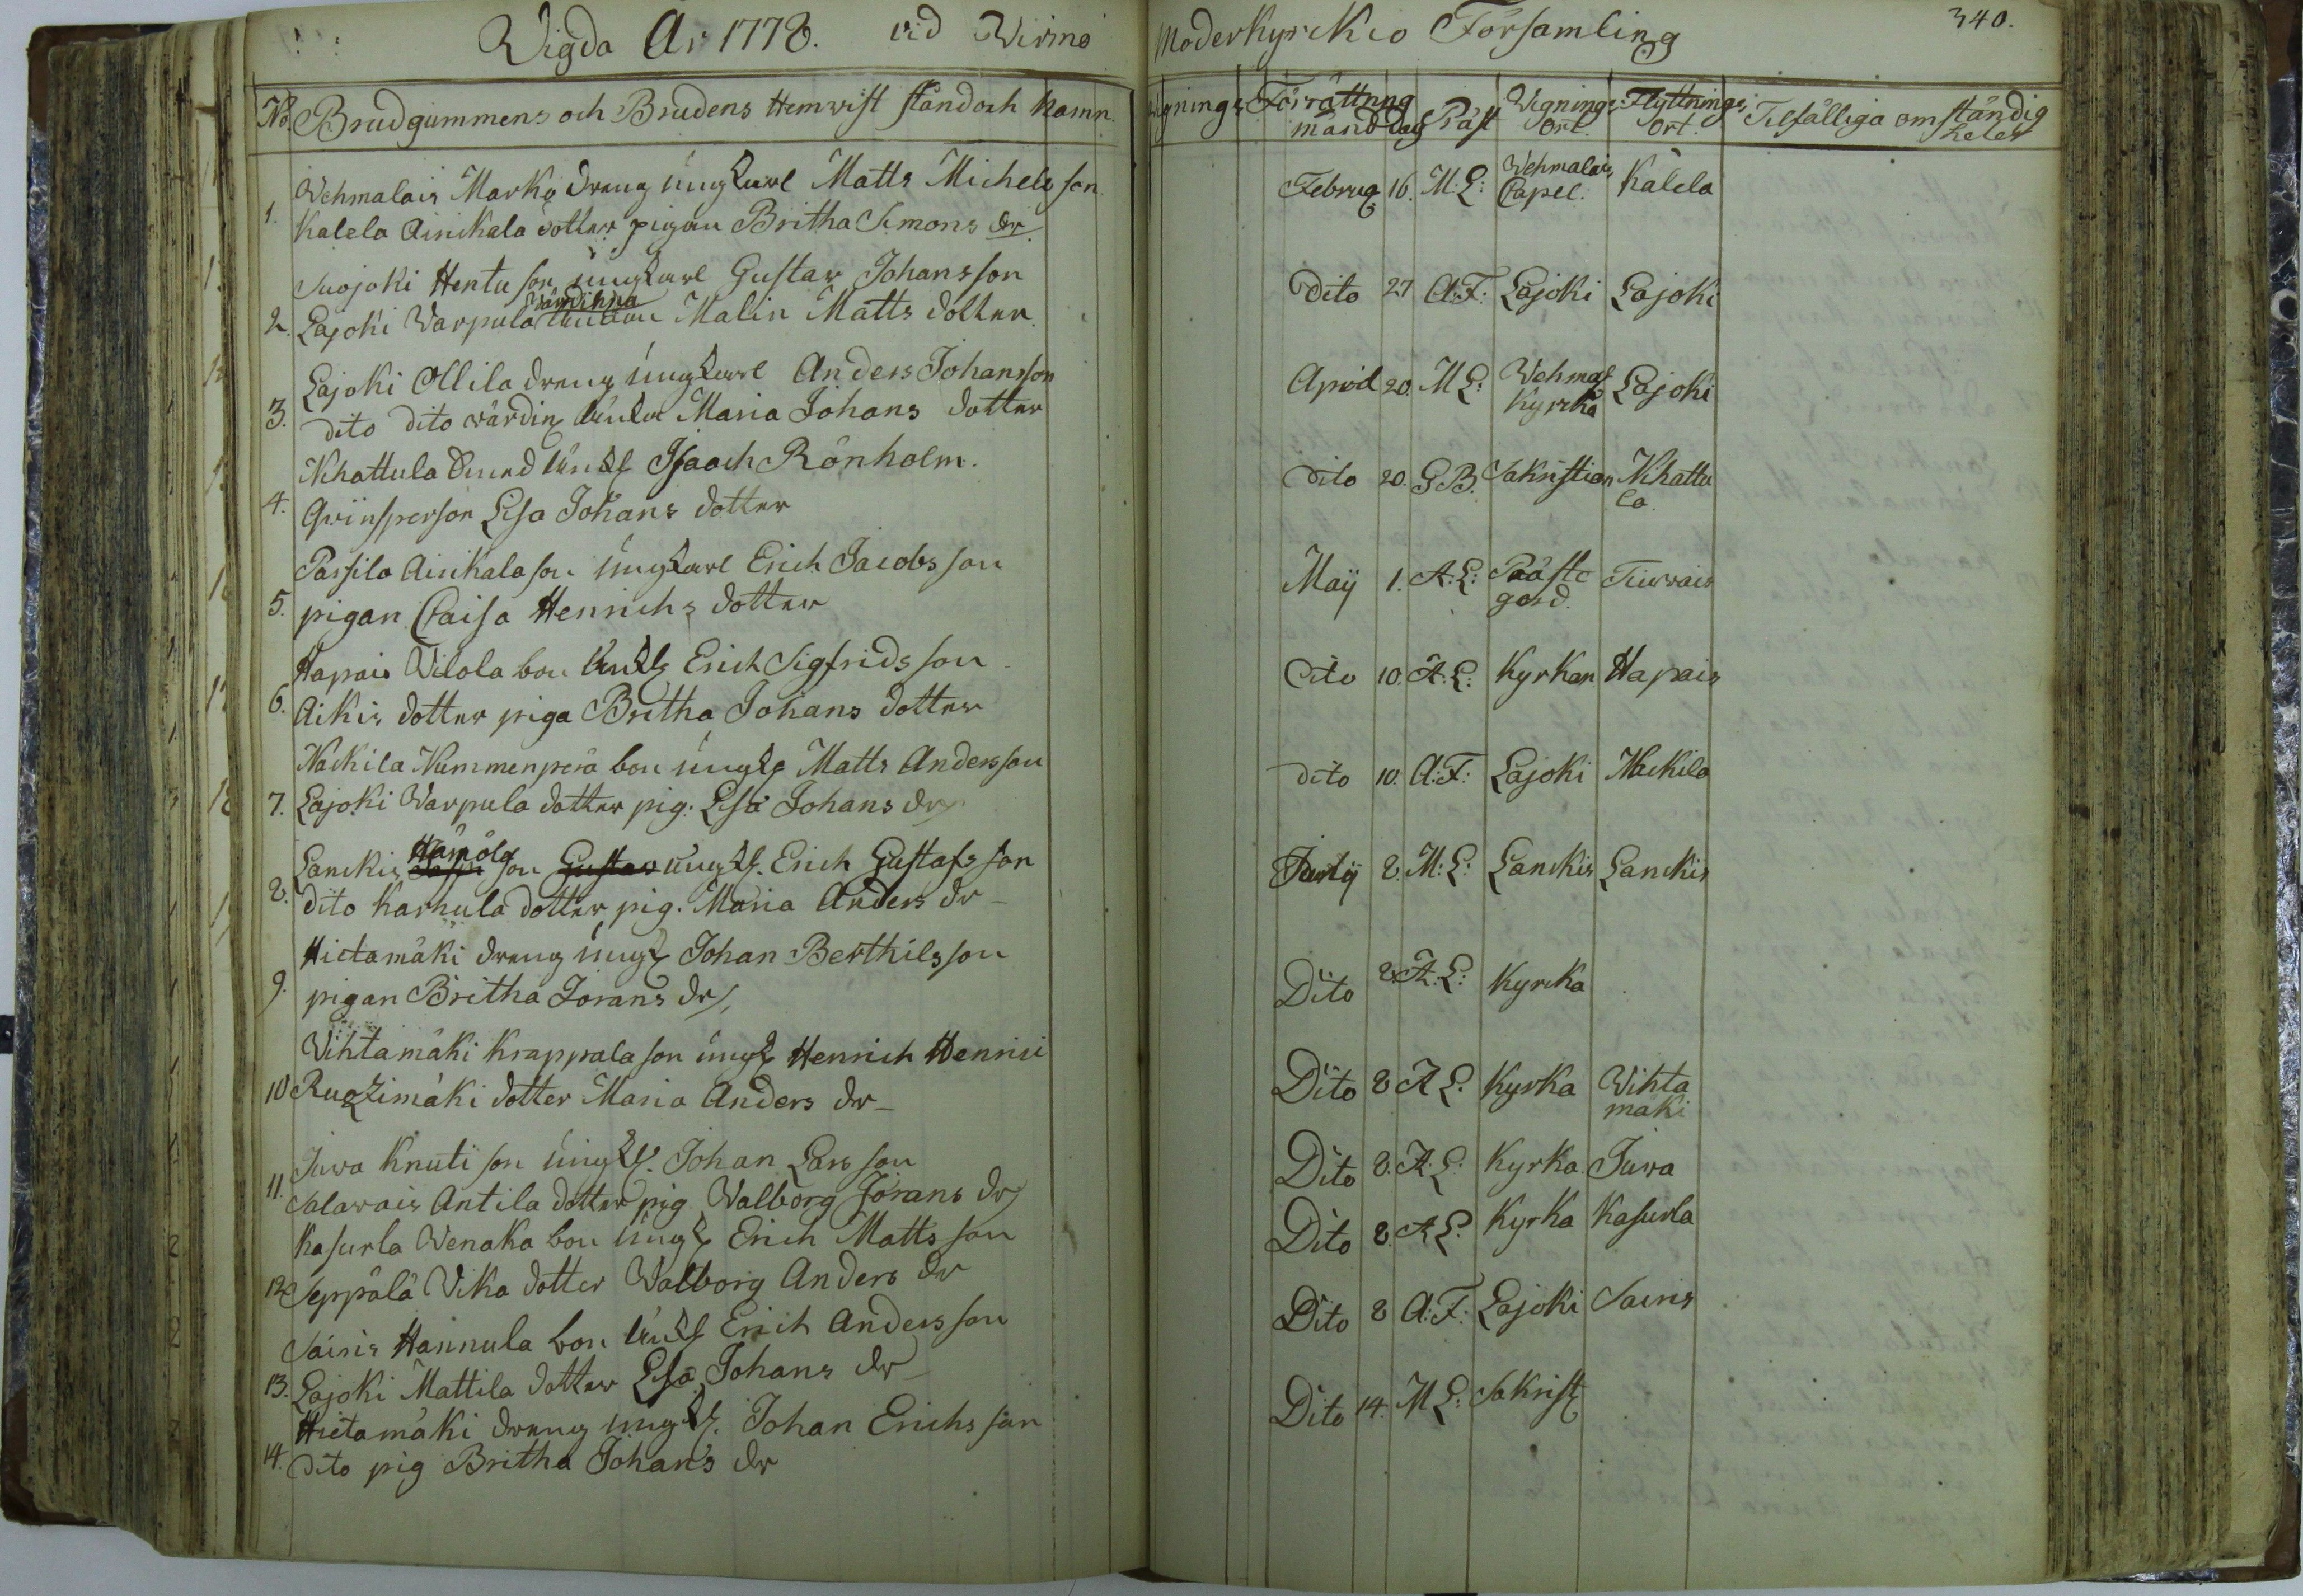 Wigda År 1778. vid Wirmo
No. Brudgummens och Brudens Hemwist stånd och Namn.
1. Wehmalais Marko dreng ungkarl Matts Michels son
Kalela Ainikala dotter pigan Britha Simons dr.
2. Suojoki Hentu son ungkarl Gustav Johansson
wärdinna
Lajoki Warpula Malin Matts dotter
3. Lajoki Ollila dreng ungkarl Anders Johansson
dito dito wärdin Maria Johans dotter
4. Nihattula Isaach Rönholm.
Qvinsperson Lisa Johans dotter
5. Passila Ainikala son ungkarl Erich Jacobsson
pigan Caisa Henrichs dotter
6. Hapais Wilola bon Erich Sigfridsson
Aikis dotter piga Britha Johans dotter
7. Nackila Nummenperä bon ungk Matts Andersson
Lajoki Warpula dotter pig. Lisa Johans dr
8. Lanckis son Gustav ungk. Erich Gustafsson
dito Karhula dotter pig. Maria Anders dr
9. Hietamäki dreng ungk Johan Berthilsson
pigan Britha Jörans dr
10 Wihtamäki Krappala son ungk Henrich Henrici
Ruozimäki dotter Maria Anders dr
11. Juva Knuti son ungk. Johan Larsson
Salavais Antila dotter pig Walborg Jörans dr
12 Kasurla Wenaka bon ungk Erich Mattsson
Seppälä Vika dotter Walborg Anders dr
13. Sairis Hannula bon Erich Andersson
Lajoki Mattila dotter Lisa Johans dr
14. Hietamäki dreng ungk. Johan Erichsson
dito pig Britha Johans dr
Moderkyrckio Församling 340.
Förrättning Wignings Flyttnings Tilfälliga omständig
månd Dag Präst Ort. Ort. heter
Februa 16. M: L: Wehmalais Capel. Kalela
Dito 27 A: F: Lajoki Lajoki
April 20. M L: Wehmal Kyrcka Lajoki
dito 20. G. B. Sakristian Nihattula
Maij 1. A: L: Präste gård. Tiuvais
Dito 10. A: L: Kyrkan Hapais
dito 10. A: F: Lajoki Nackila
8. M: L: Lanckis Lanckis
Dito 8. A: L: Kyrcka
Dito 8 A L: Kyrka Wihta mäki
Dito 8. A: L: Kyrka Juva
Dito 8. A L: Kyrka Kasurla
Dito 8 A: F: Lajoki Sairis
Dito 14. M L: Sakrist